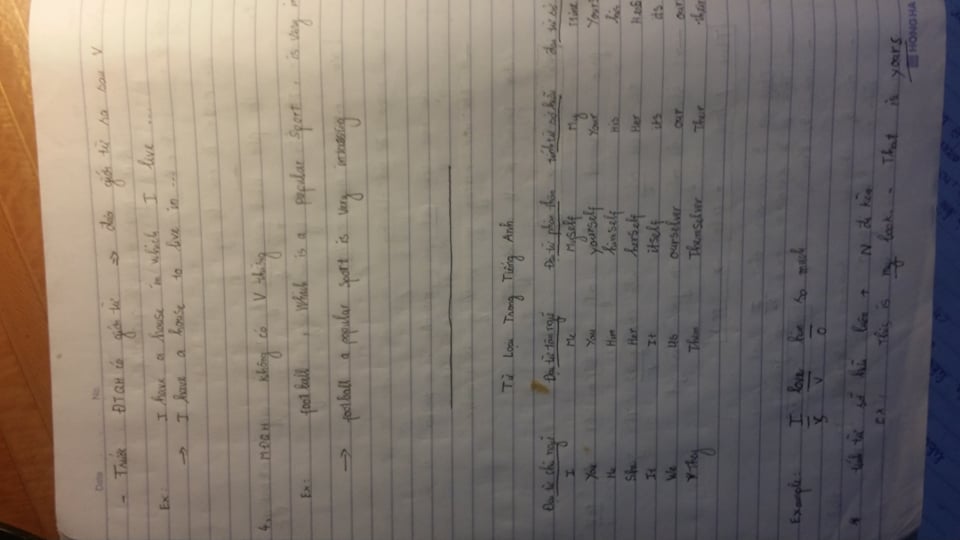 Date No.
- Trước ĐTQH có giới từ ⇒ đảo giới từ ra sau V
Ex: I have a house in which I live ...
→ I have a house to live in ...
4, MĐQH không có V thường
Ex: football, which is a popular sport, is very
→ football a popular sport is very
Từ Loại Trong Tiếng Anh
Đại từ chủ ngữ Đại từ tân ngữ Đại từ phản thân tính từ sở hữu đại từ sở
I Me Myself My Mine
You You yourself Your Your
He Him himself His his
She Her herself Her Her
It It itself its its
We Us ourselver our our
They Them Themselver Their their
Example: I love her so much
S V O
* tính từ sở hữu luôn + N đi kèm
Ex: This is my book - That is yours
HONG HA